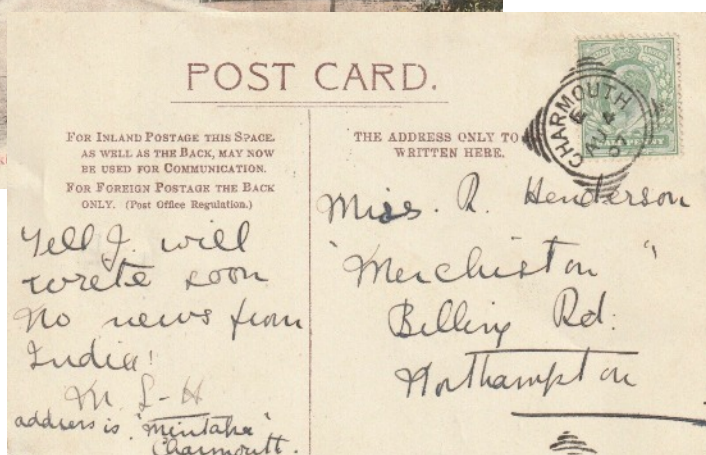 POST CARD.
FOR INLAND POSTAGE THIS SPACE.
AS WELL AS THE BACK, MAY NOW
BE USED FOR COMMUNICATION.
FOR FOREIGN POSTAGE THE BACK
ONLY. (Post Office Regulation.)
Tell J. will
wrete soon
No news from
India!
M L-H
address is "Mintaka"
Charmouth.
THE ADDRESS ONLY TO
WRITTEN HERE.
CHARMOUTH
AU 4
07
Miss. R. Henderson
"Merchiston"
Billing Rd:
Northampton